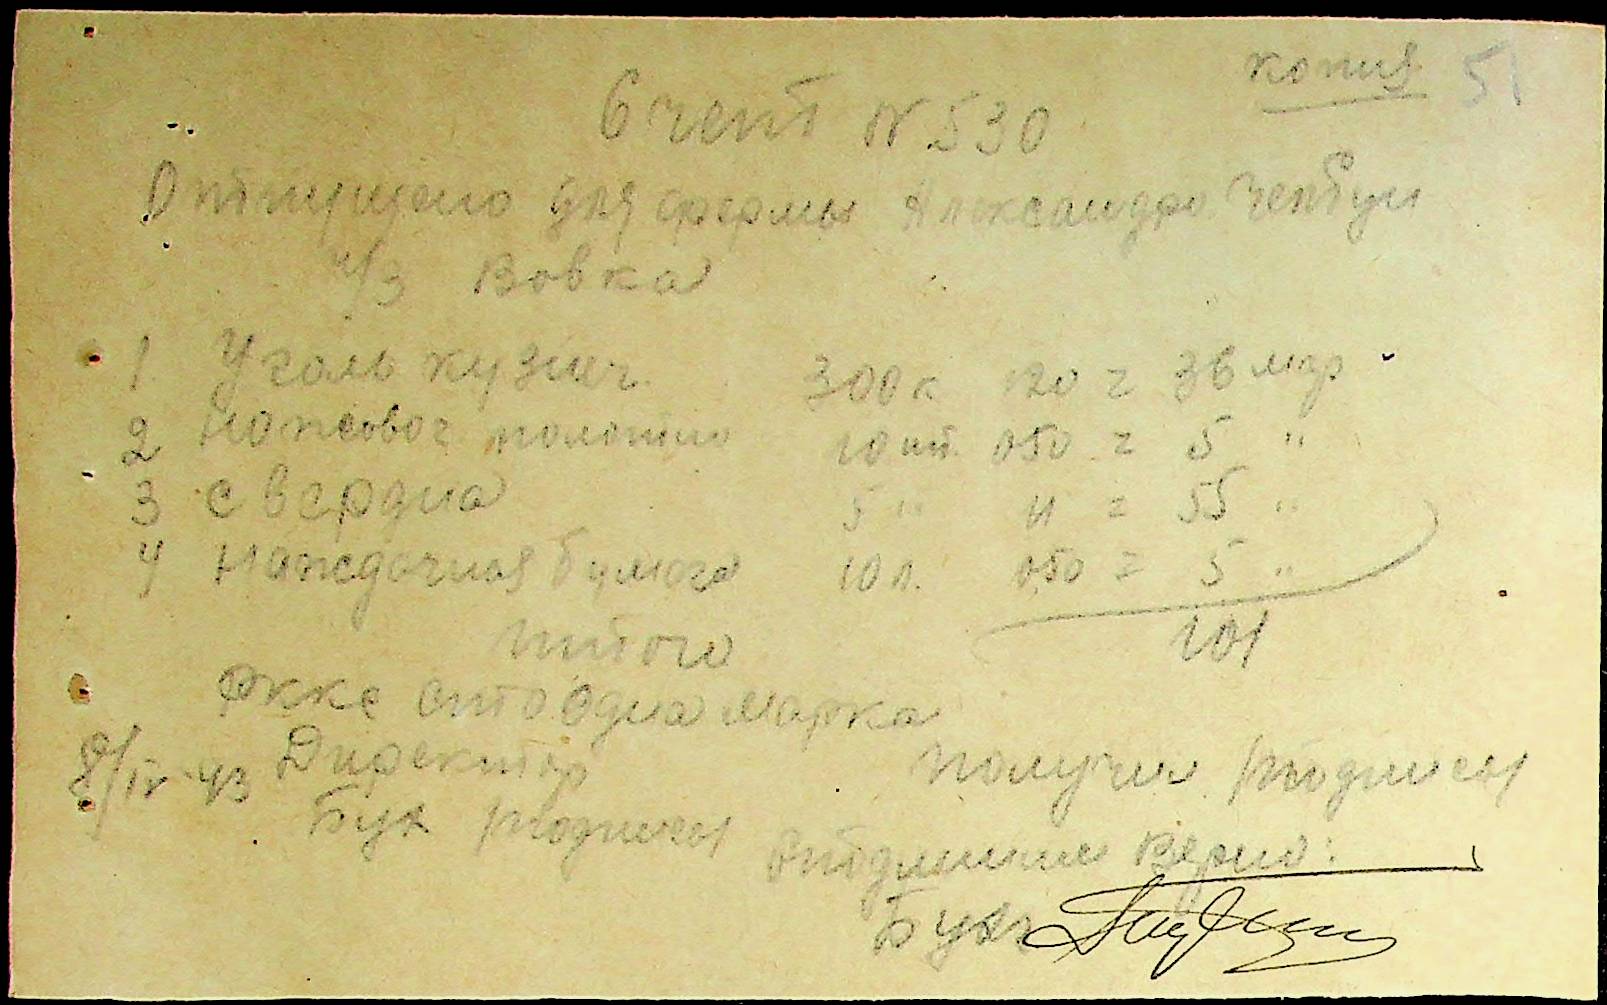 копия 51
Счет N 530
Отпущено для фермы Александро
ч/з Вовка
1. Уголь кузнеч. 300 к 120 = 36 мар
2 Ножовоч полотно 10 шт. 050 = 5 "
3 сверла 5 " 11 = 55 "
4 Наждачная бумага 10 л. 050 = 5 "
Итого 101
сто одна марка
8/IV-43 Директор получил /подпись/
Бух /подпись/
верно:
Бух